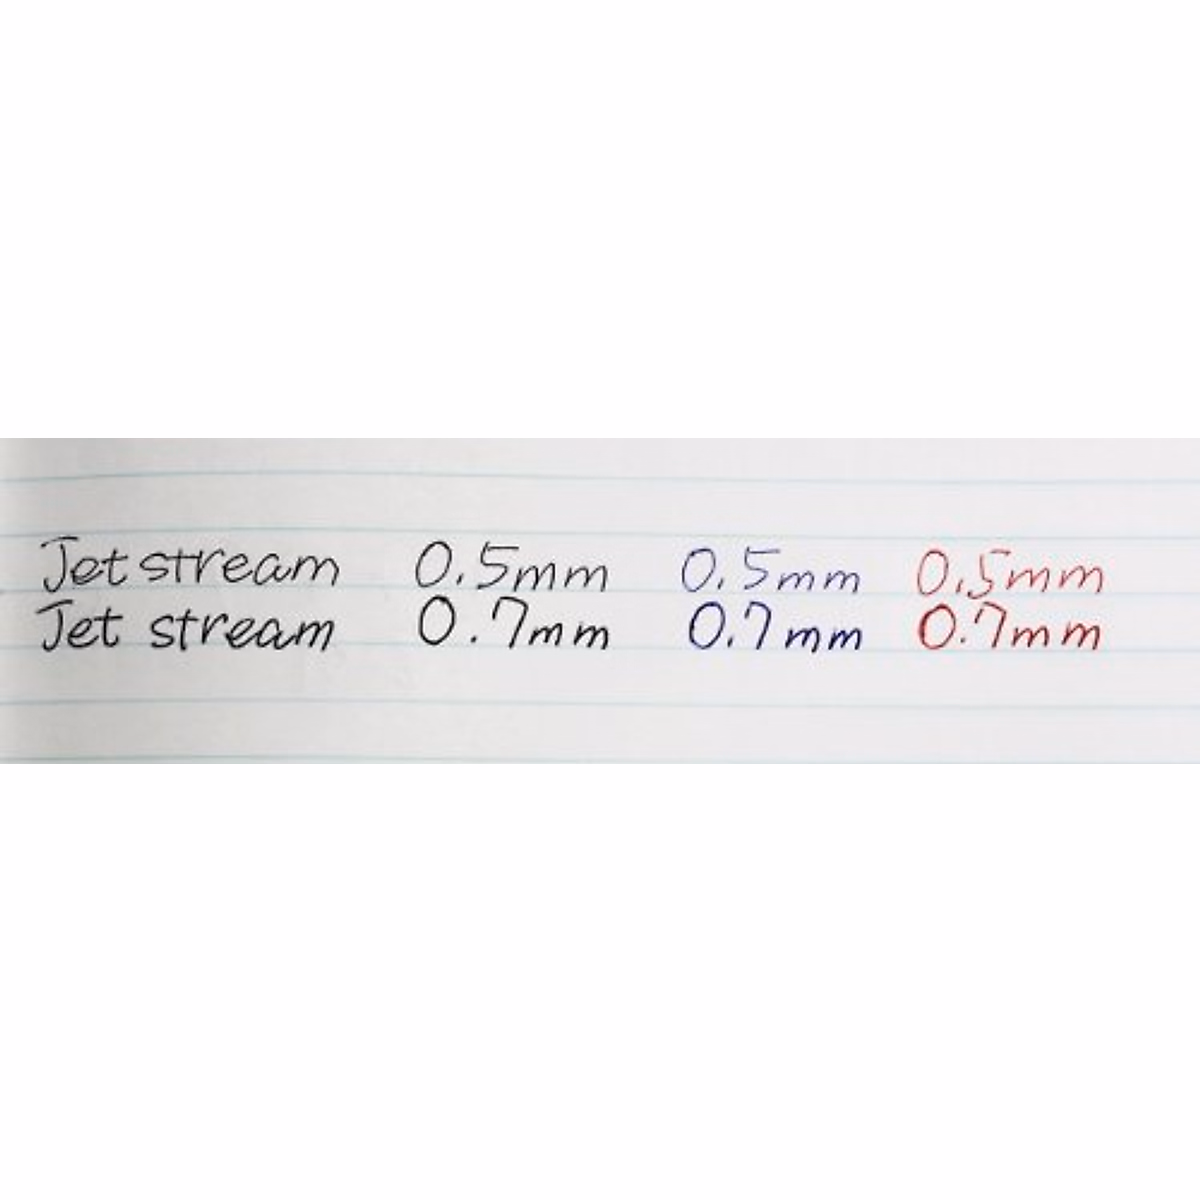 Jetstream 0.5mm 0.5mm 0.5mm
Jet stream 0.7mm 0.7mm 0.7mm